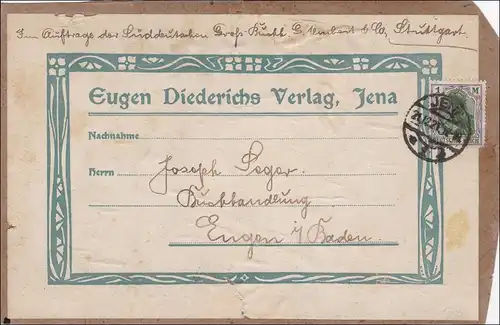 Im Auftrage der Süddeutschen Groß-Buchh. G. Umbreit & Co, Stuttgart.
Eugen Diederichs Verlag, Jena
1 M
JENA
Nachnahme
Herrn Joseph Seger
Buchhandlung
Engen i/ Baden